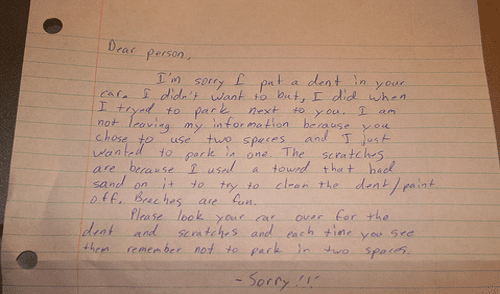 Dear person,
I'm sorry I put a dent in your
car. I didn't want to but, I did when
I tryed to park next to you. I am
not leaving my information because you
chose to use two spaces and I just
wanted to park in one. The scratches
are because I used a towed that had
sand on it to try to clean the dent/paint
off. Beaches are fun.
Please look your car over for the
dent and scratches and each time you see
them remember not to park in two spaces.
-Sorry!!!